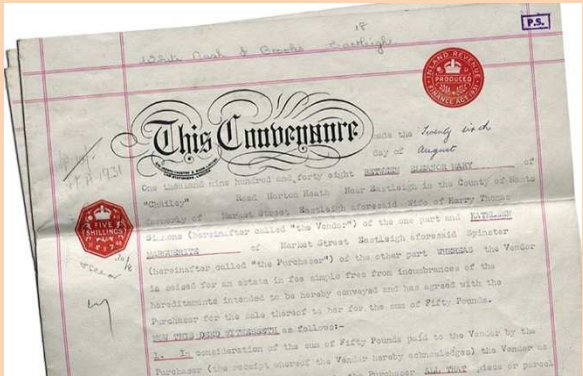 18
White Nash & Brooks Eastleigh
P.S.
INLAND REVENUE
PRODUCED
FINANCE ACT, 1931
This Conveyance made the Twenty sixth
day of August
One thousand nine hundred and forty eight BETWEEN ELEANOR MARY of
"Chailey" Road Horton Heath Near Eastleigh in the County of Hants
formerly of Market Street Eastleigh aforesaid Wife of Harry Thomas
(hereinafter called "the Vendor") of the one part and KATHLEEN
MARGUERITE of Market Street Eastleigh aforesaid Spinster
(hereinafter called "the Purchaser") of the other part WHEREAS the Vendor
is seized for an estate in fee simple free from incumbrances of the
hereditaments intended to be hereby conveyed and has agreed with the
Purchaser for the sale thereof to her for the sum of Fifty Pounds.
NOW THIS DEED WITNESSETH as follows:-
1. In consideration of the sum of Fifty Pounds paid to the Vendor by the
Purchaser (the receipt whereof the Vendor hereby acknowledges) the Vendor as
the Purchaser ALL THAT piece or parcel
1931
FIVE
SHILLINGS